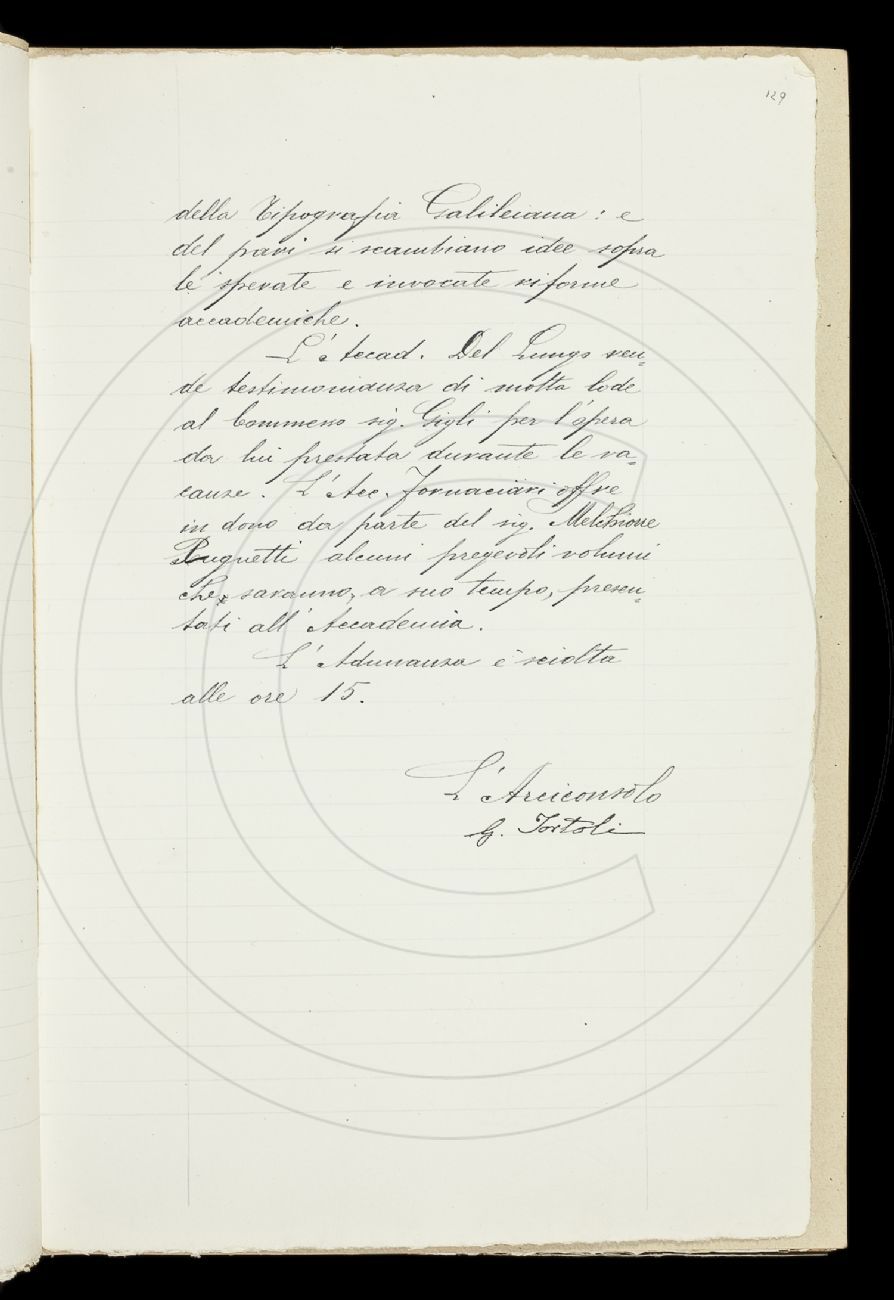 129
della Tipografia Galileiana: e
del pari si scambiano idee sopra
le sperate e invocate riforme
accademiche.
L'Accad. Del Lungo ren-
de testimonianza di molta lode
al Commesso sig. Gigli per l'opera
da lui prestata durante le va-
canze. L'Acc. Fornaciari offre
in dono da parte del sig. Melchiorre
alcuni pregevoli volumi
che, saranno, a suo tempo, presen-
tati all'Accademia.
L'Adunanza è sciolta
alle ore 15.
L'Arciconsolo
G. Tortoli